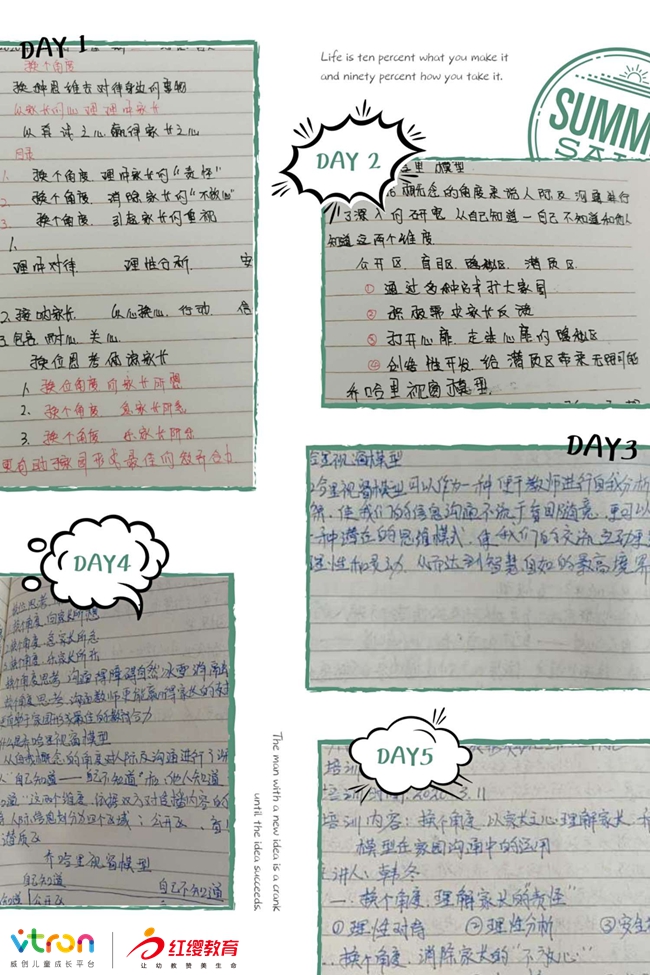 DAY 1
换个角度
换种思维去对待身边的事物
从家长的心理理解家长
以真诚之心赢得家长之心
目录
1. 换个角度 理解家长的"责怪"
2. 换个角度 消除家长的"不放心"
3. 换个角度 引起家长的重视
1.
理解对待 理性分析 安
2. 接纳家长 以心换心 行动 信
3. 包容 耐心 关心
换位思考
1. 换位角度 家长所想
2. 换个角度 急家长所急
3. 换个角度 乐家长所乐
Life is ten percent what you make it
and ninety percent how you take it.
SUMM
SA
DAY 2
里 模型
概念的角度来说人际及沟通进行
了深入的研究 从自己知道—自己不知道和他人
知道这两个维度
公开区 盲目区 隐蔽区 潜质区
① 通过各种
② 积极寻求家长反馈
③ 打开心扉 走进心扉的隐蔽区
④ 创造性开发 给潜质区带来无限可能
乔哈里视窗模型
DAY3
哈里视窗模型
哈里视窗模型可以作为一种便于教师进行自我分析
解,使我们的信息沟通不流于盲目随意,更可以
一种潜在的思维模式,使我们的交流互动更
理性和灵动,从而达到智慧自如的最高度界
DAY4
换位思考
换个角度 想家长所想
换个角度 急家长所急
换个角度 乐家长所乐
换个角度思考 沟通得障碍自然冰雪消融
换个角度思考 沟通教师更能赢得家长的
什么是乔哈里视窗模型
从自我概念的角度对人际及沟通进行了深
以"自己知道——自己不知道"和"他人知道
道"这两个维度,依据双方对
人际 划分为四个区域:公开区、盲
潜质区
乔哈里视窗模型
自己知道 自己不知道
知道 公开区
The man with a new idea is a crank
until the idea succeeds.
DAY5
培训
培训时间:2020.3.11
培训内容:换个角度,以家长之心理解家长,
模型在家园沟通中的运用
主讲人:韩冬
一、换个角度,理解家长的"责怪"
①理性对待 ②理性分析 ③安全
、换个角度,消除家长的"不放心"
vtron
威创儿童成长平台
红缨教育
让幼教赞美生命